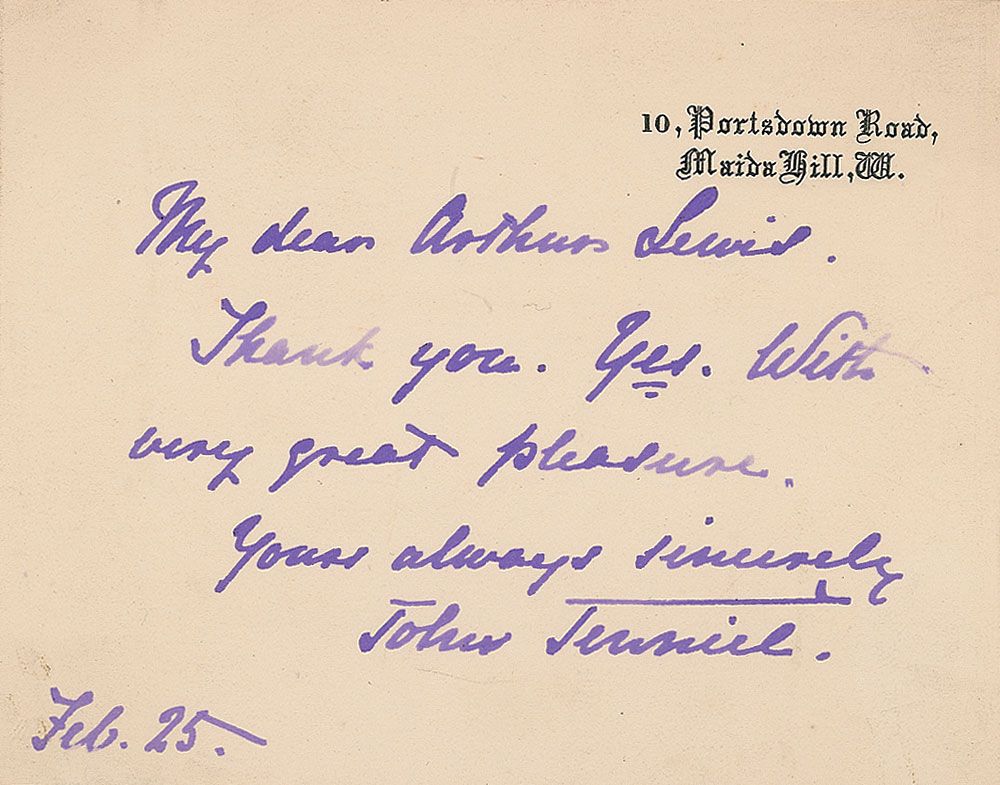 10, Portsdown Road,
Maida Hill, W.
My dear Arthur Lewis.
Thank you. Yes. With
very great pleasure.
Yours always sincerely
John Tenniel.
Feb. 25.